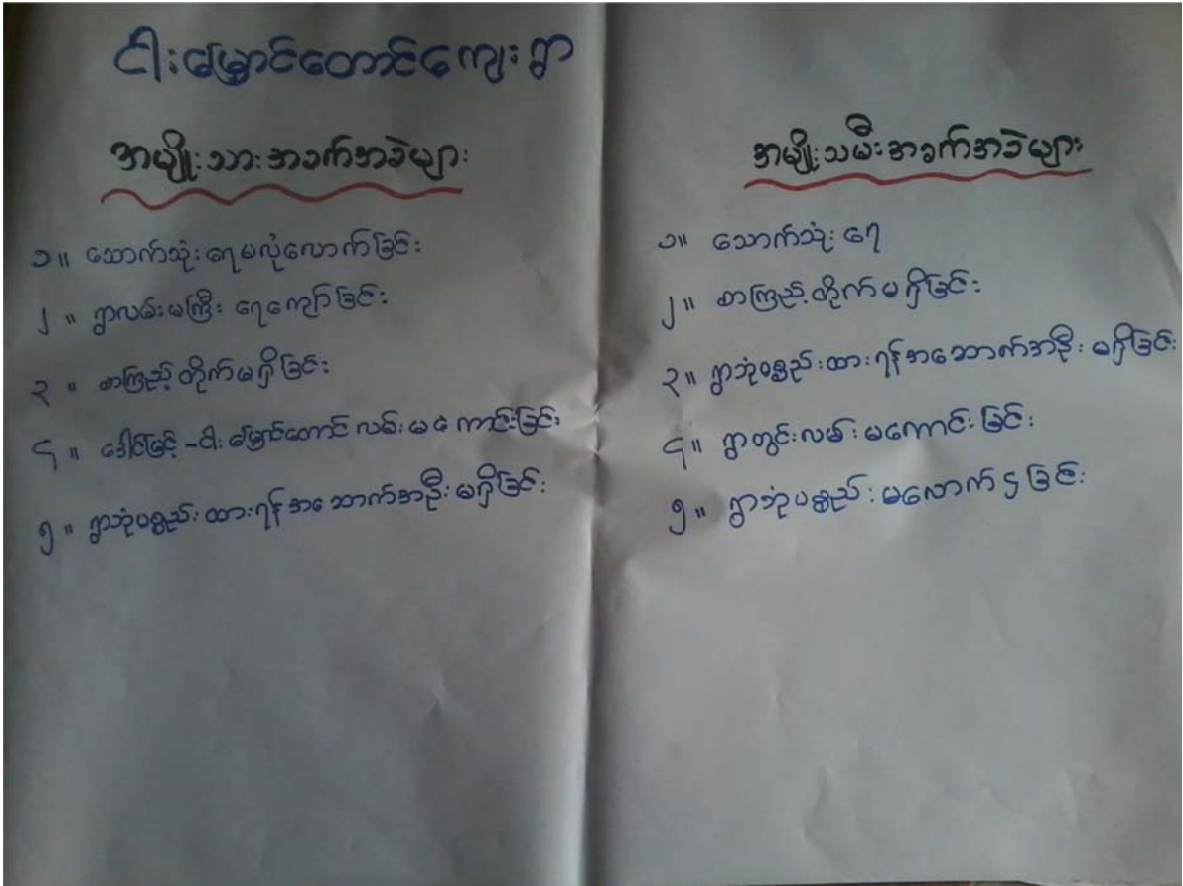 ငါးမြှောင်တောင်ကျေးရွာ
အမျိုးသားအခက်အခဲများ
၁။ သောက်သုံးရေမလုံလောက်ခြင်း
၂။ ရွာလမ်းမကြီး ရေကျော်ခြင်း
၃။ စာကြည့်တိုက်မရှိခြင်း
၄။ ဒေါင်မြင့် -ငါးမြှောင်တောင် လမ်းမကောင်းခြင်း
၅။ ရွာဘုံပစ္စည်းထားရန်အဆောက်အဦးမရှိခြင်း
အမျိုးသမီးအခက်အခဲများ
၁။ သောက်သုံးရေ
၂။ စာကြည့်တိုက်မရှိခြင်း
၃။ ရွာဘုံပစ္စည်းထားရန်အဆောက်အဦးမရှိခြင်း
၄။ ရွာတွင်းလမ်းမကောင်းခြင်း
၅။ ရွာဘုံပစ္စည်းမလောက်ငှခြင်း